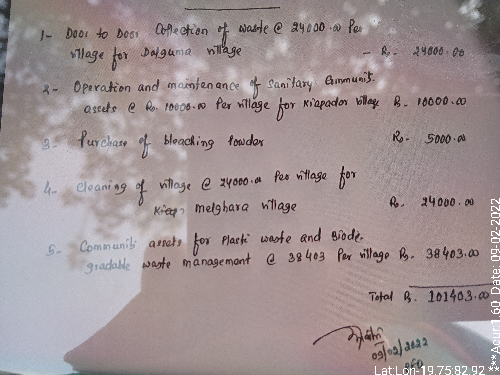 1- Door to Door Collection of waste @ 24000.00 Per
village for Dalguma village - Rs- 24000.00
2- Operation and maintenance of sanitary Communiti
assets @ Rs. 10000.00 Per village for Kiapadar village Rs. 10000.00
3- Purchase of bleaching Powder Rs- 5000.00
4- Cleaning of village @ 24000.00 Per village for
melghara village Rs. 24000.00
5- Communiti assets for Plasti waste and Biode-
gradable waste management @ 38403 Per village Rs. 38403.00
Total Rs. 101403.00
09/02/2022
Lat:Lon-19.7582,92
Date, 09-02-2022